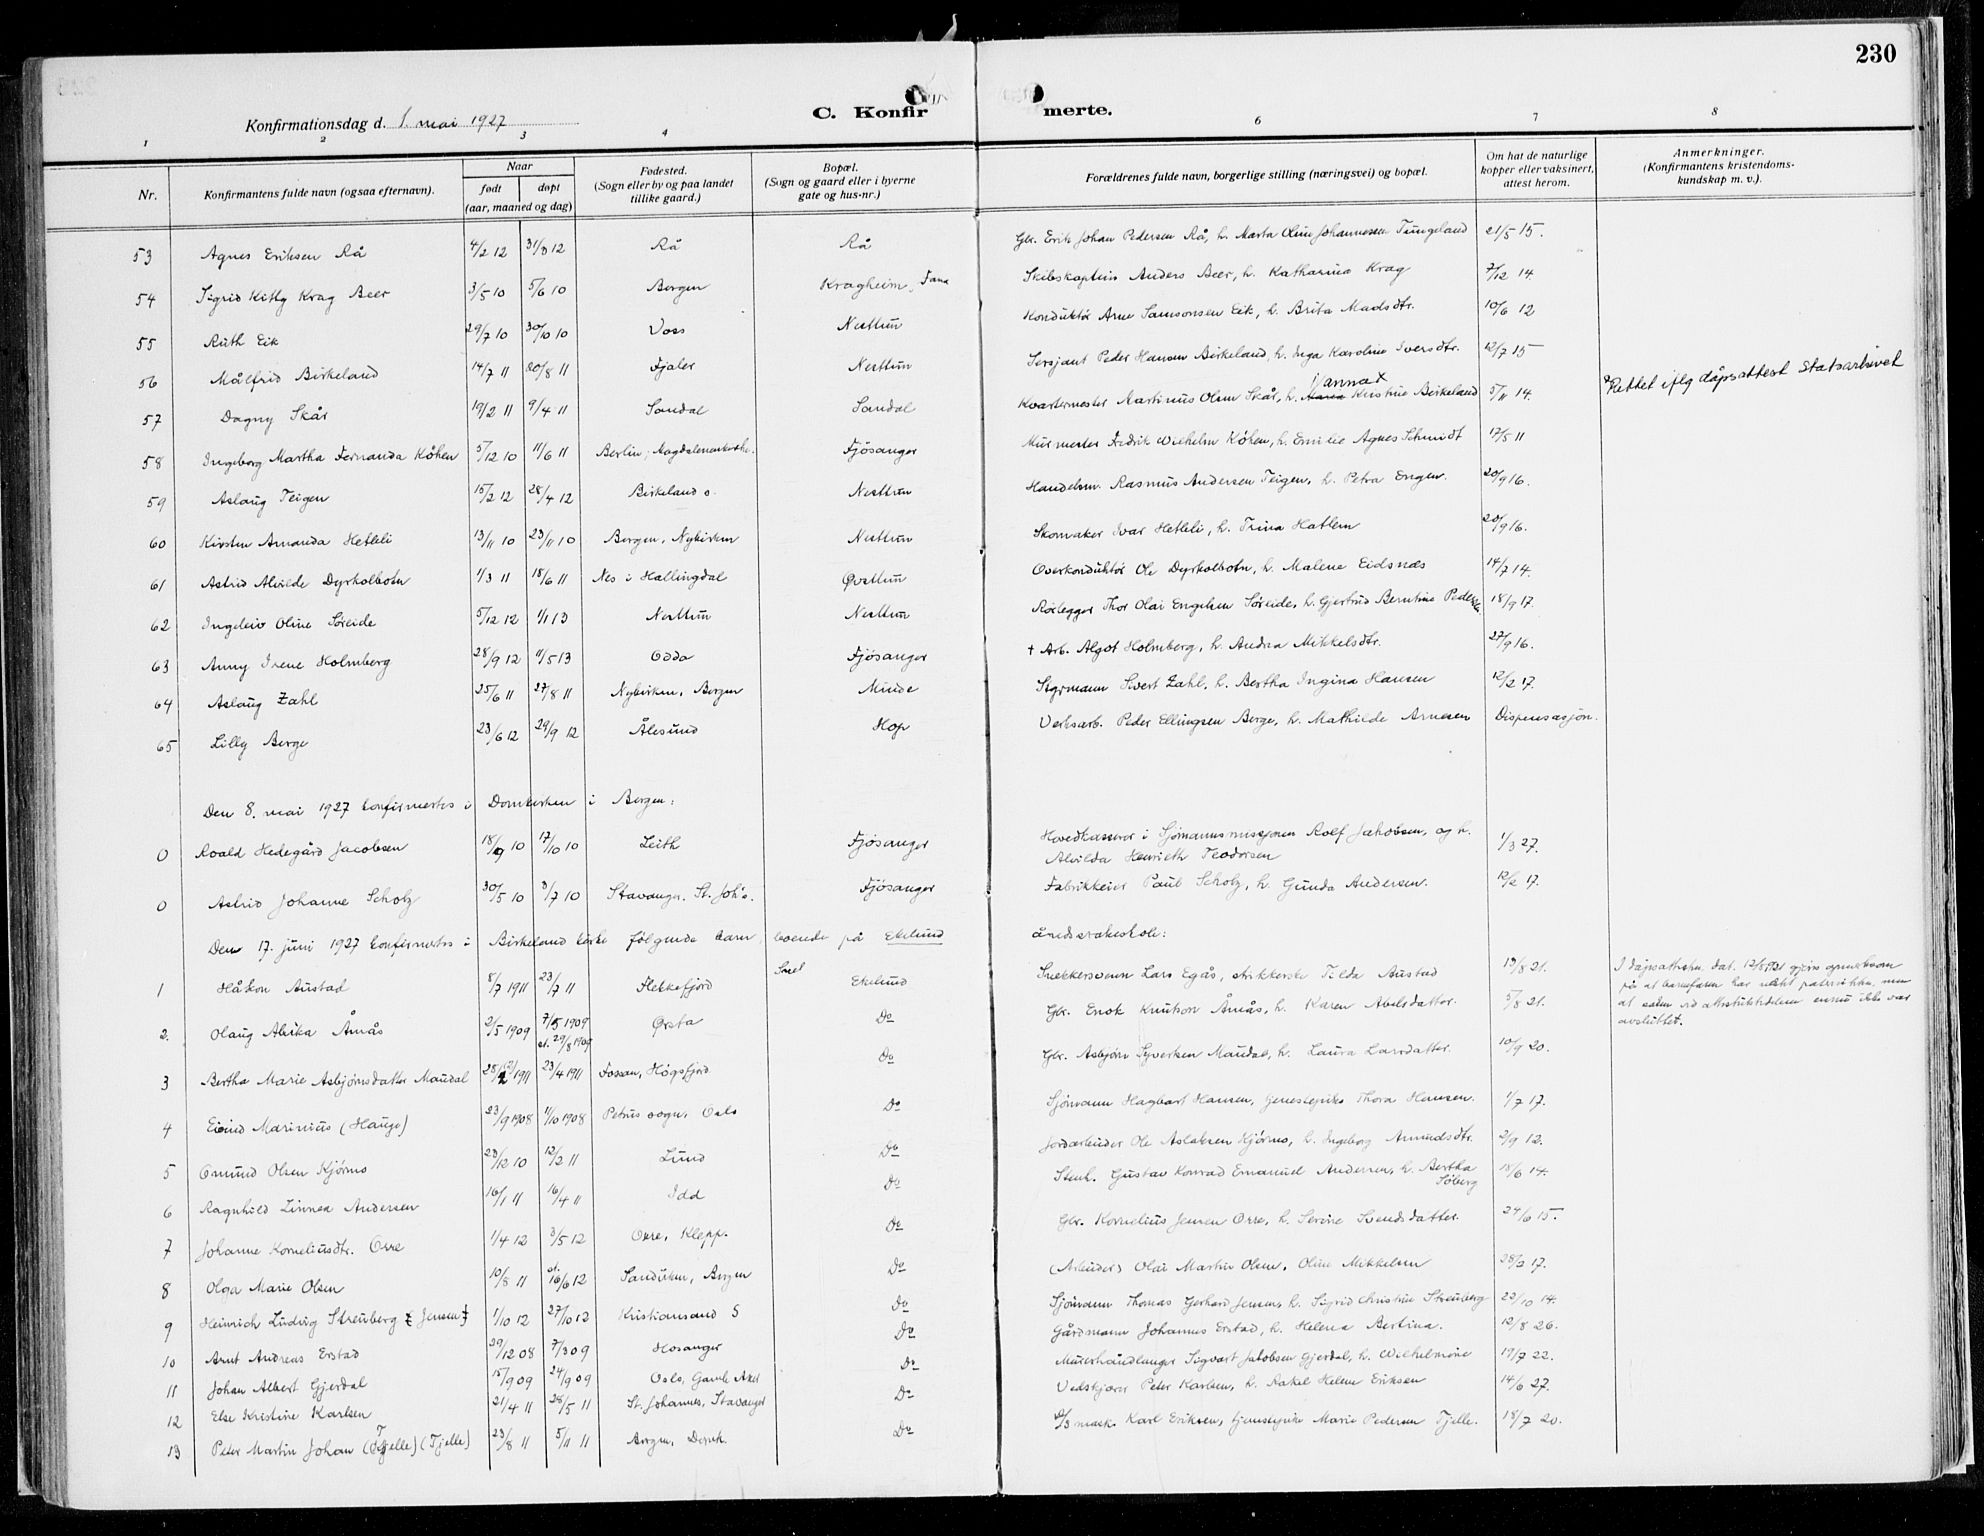 230
C. Konfirmerte.
Konfirmationsdag d. 1. mai 1927
1 2 3 4 6 7 8
Nr. Konfirmantens fulde navn (ogsaa efternavn). Naar født døpt (aar, maaned og dag) Fødested. (Sogn eller by og paa landet tillike gaard.) Bopæl. (Sogn og gaard eller i byerne gate og hus-nr.) Forældrenes fulde navn, borgerlige stilling (næringsvei) og bopæl. Om hat de naturlige kopper eller vaksinert, attest herom. Anmerkninger. (Konfirmantens kristendoms-kundskap m. v.).
53 Agnes Eriksen Rå 4/2 12 31/3 12 Rå Rå Gbr. Erik Johan Pedersen Rå, h. Marta Oline Johannesen Tungeland 21/5 15.
54 Sigrid Kitty Krag Beer 3/5 10 5/6 10 Bergen Kragheim, Fana Skibskaptein Anders Beer, h. Katharina Krag 7/12 14
55 Ruth Eik 29/7 10 30/10 10 Voss Nesttun Konduktør Arne Samsonsen Eik, h. Brita Madsdtr. 10/6 12
56 Målfrid Birkeland 14/7 11 20/8 11 Fjaler Nesttun Sersjant Peder Hansen Birkeland, h. Inga Karoline Iversdtr. 12/7 15
57 Dagny Skår 19/2 11 9/4 11 Sandal Sandal Kvartermester Martinus Olsen Skår, h. Hanna x Kristine Birkeland 5/11 14. x Rettet iflg dåpsattest Statsarkivet
58 Ingeborg Martha Fernanda Köhen 5/12 10 11/6 11 Berlin, Magdalenenkirche. Fjösanger Murmester Fredrik Wilhelm Köhen, h. Emilie Agnes Schmidt 17/5 11
59 Aslaug Teigen 15/2 12 28/4 12 Birkeland s. Nesttun Handelsm. Rasmus Andersen Teigen, h. Petra Engen. 20/9 16.
60 Kirsten Amanda Hetleli 13/11 10 23/11 10 Bergen, Nykirken Nesttun Skomaker Ivar Hetleli, h. Trina Hatlem 20/9 16.
61 Astrid Alvilde Dyrkolbotn 1/3 11 18/6 11 Nes i Hallingdal Øvsttun Overkonduktør Ole Dyrkolbotn, h. Malene Eidsnes 14/7 14.
62 Ingeleiv Oline Søreide 5/12 12 1/1 13 Nesttun Nesttun Rørlegger Thor Olai Engelsen Søreide, h. Gjertrud Berntine Pedersen 18/9 17.
63 Anny Irene Holmberg 28/9 12 11/5 13 Odda Fjösanger † Arb. Algot Holmberg, h. Andrea Mikkelsdtr. 27/9 16.
64 Aslaug Zahl 25/6 11 27/8 11 Nykirken, Bergen Minde Styrmann Sivert Zahl, h. Bertha Ingina Hansen 12/2 17.
65 Lilly Berge 23/6 12 29/9 12 Ålesund Hop Verksarb. Peder Ellingsen Berge, h. Mathilde Arnesen Dispensasjon.
Den 8. mai 1927 konfirmertes i Domkirken i Bergen:
0 Roald Hedegård Jacobsen 18/9 10 17/10 10 Leith Fjösanger Hovedkasserer i Sjømannsmissjonen Rolf Jakobsen, og h. Alvilda Henrieth Teodorsen 1/3 27.
0 Astrid Johanne Scholz 30/5 10 3/7 10 Stavanger. St. Joh's. Fjösanger Fabrikkeier Paul Scholz, h. Gunda Andersen. 12/2 17.
Den 17. juni 1927 konfirmertes i Birkeland kirke følgende barn, boende på Ekelund åndssvakeskole:
1 Håkon Austad 8/7 1911 23/7 11 Flekkefjord Ekelund Snekkersvenn Lars Egås, Tilda Austad 19/8 21. I dåpsattesten dat. 12/8 1921 gjøres opmerksom på at barnefaren har nektet paterniteten, men at saken ved attestutstedelsen ennu ikke var avsluttet.
2. Olaug Alvika Åmås 2/5 1909 7/5 1909 st. 29/8 1909 Ørsta Do Gbr. Enok Knutson Åmås, h. Karen Abelsdatter. 5/8 21.
3 Bertha Marie Asbjørnsdatter Maudal 1911 23/4 1911 Fossan, Høgsfjord Do Gbr. Asbjørn Syvertsen Maudal, h. Laura Larsdatter. 10/9 20.
4 Eivind Marinius (Hauge) 23/9 1908 11/10 1908 Petrus sogn, Oslo Do Sjömann Hagbart Hansen, tjenestepike Thora Hansen. 1/7 17.
5 Omund Olsen Kjørmo 23/12 10 12/2 11 Lund Do Jordarbeider Ole Aslaksen Kjörmo, h. Ingeborg Amundsdtr. 2/9 12.
6 Ragnhild Linnea Andersen 16/1 11 16/4 11 Idd Do Stenh. Gustav Konrad Emanuel Andersen, h. Bertha Söberg 18/6 14.
7 Johanne Korneliusdtr. Orre 1/4 12 3/5 12 Orre, Klepp. Do Gbr. Kornelius Jensen Orre, h. Serine Svendsdatter. 24/6 15.
8 Olga Marie Olsen 10/8 11 st. 16/6 12 Sandviken, Bergen Do (Arbeider) Olai Martin Olsen, Oline Mikkelsen 28/2 17.
9 Heinrich Ludvig Streuberg Jensen 1/10 12 27/10 12 Kristiansand S Do Sjömann Thomas Gerhard Jensen, h. Sigrid Christine Streuberg 22/10 14.
10 Arnt Andreas Erstad 29/12 08 7/3 09 Hosanger Do Gårdmann Johannes Erstad, h. Helena Bertina. 12/8 26.
11 Johan Albert Gjerdal 15/9 09 24/9 09 Oslo, Gamle Aker Do Murerhåndlanger Sigvart Jakobsen Gjerdal, h. Wilhelmine 19/7 22.
12 Else Kristine Karlsen 21/4 11 28/5 11 St. Johannes, Stavanger Do Vedskjærer Peter Karlsen, h. Rakel Helene Eriksen 14/6 27.
13 Peter Martin Johan (Tjelle) 23/8 11 5/11 11 Bergen, Domk. Do mask. Karl Eriksen, tjenestepike Marie Pedersen Tjelle. 18/7 20.